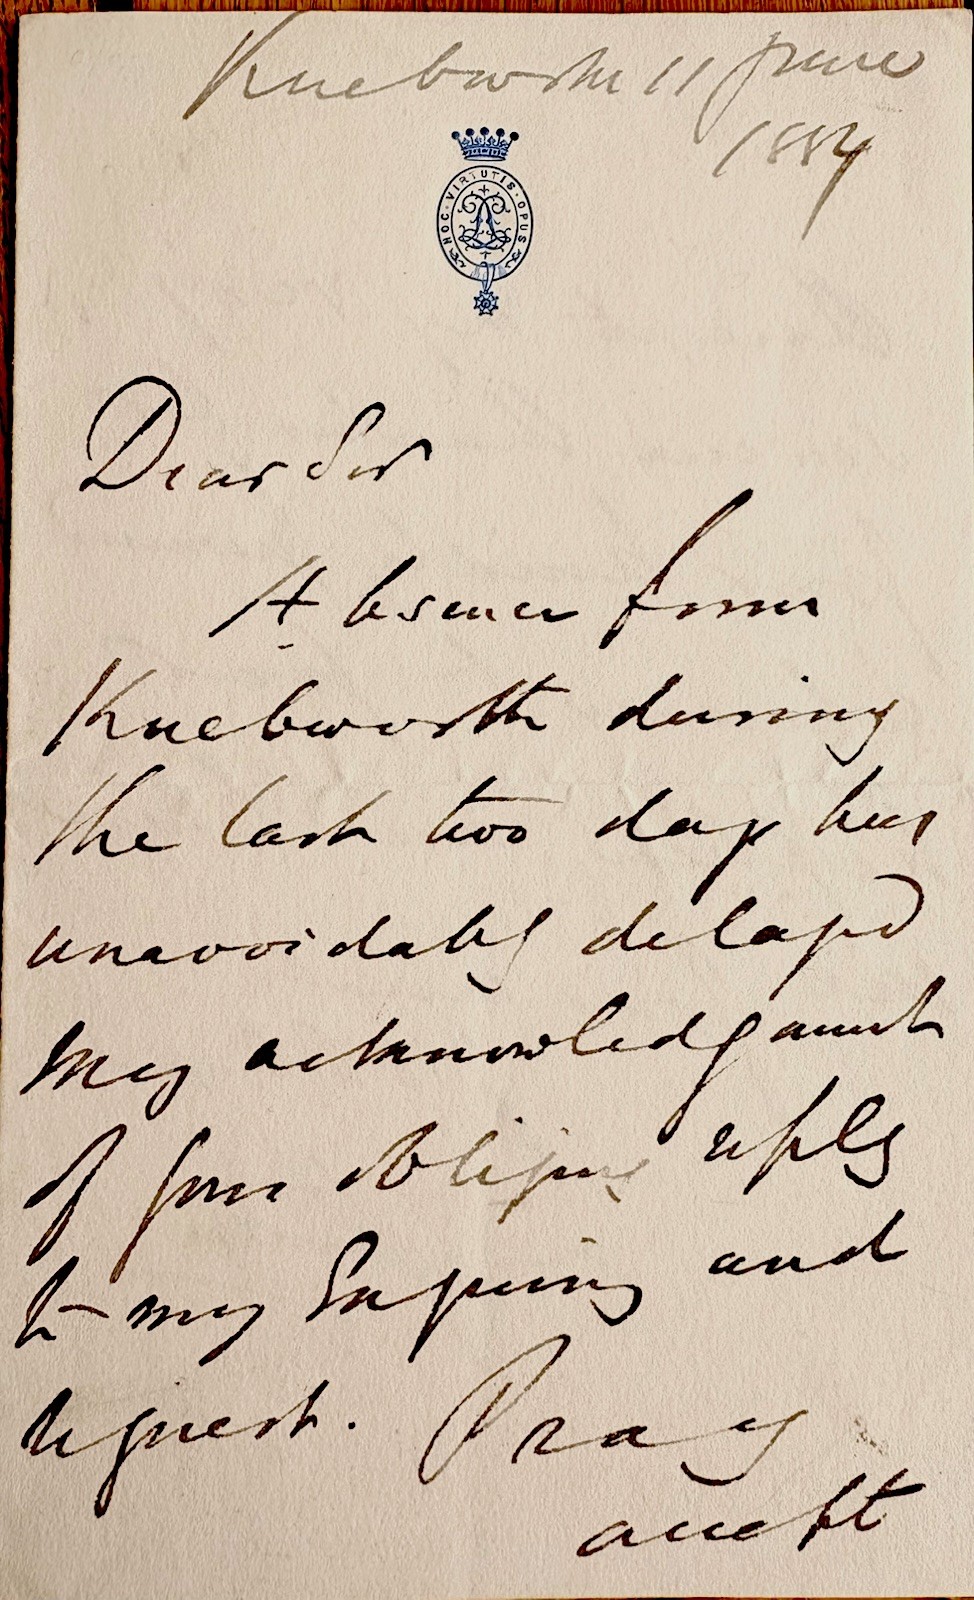 Knebworth 11 June
1884
HOC · VIRTUTIS · OPUS
Dear Sir
Absence from
Knebworth during
the last two days has
unavoidably delayed
my acknowledgment
of your obliging reply
to my Enquiry and
request. Pray
accept